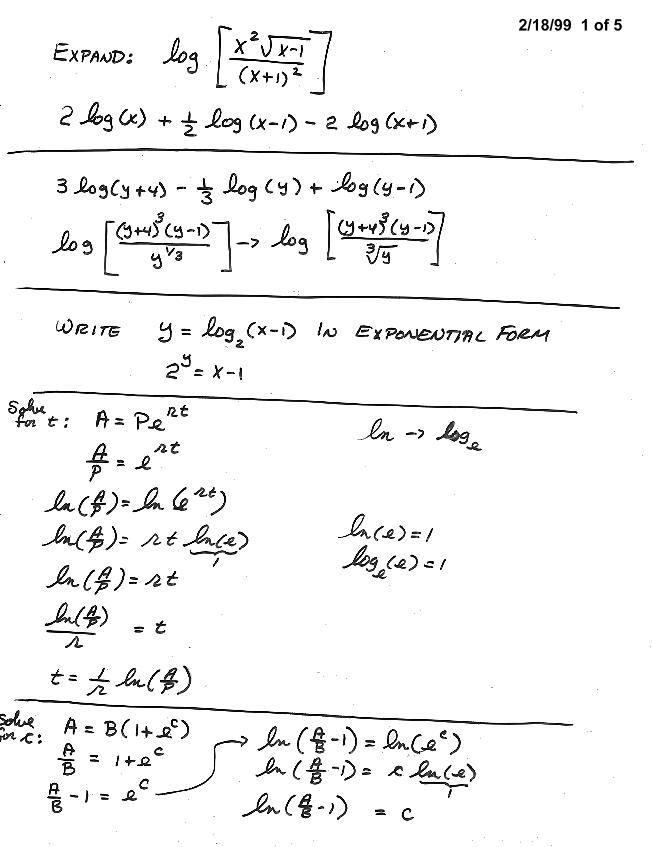 2/18/99 1 of 5
EXPAND: log [x²√(x-1) / (x+1)²]
2 log(x) + 1/2 log(x-1) - 2 log(x+1)
3 log(y+4) - 1/3 log(y) + log(y-1)
log [(y+4)³(y-1) / y^(1/3)] -> log [(y+4)³(y-1) / ∛y]
WRITE y = log₂(x-1) IN EXPONENTIAL FORM
2^y = x-1
Solve for t: A = Pe^(rt)
ln -> log_e
A/P = e^(rt)
ln(A/P) = ln(e^(rt))
ln(A/P) = rt ln(e)
1
ln(e) = 1
log_e(e) = 1
ln(A/P) = rt
ln(A/P) / r = t
t = 1/r ln(A/P)
Solve for c: A = B(1+e^c)
A/B = 1+e^c
A/B - 1 = e^c
ln(A/B - 1) = ln(e^c)
ln(A/B - 1) = c ln(e)
1
ln(A/B - 1) = c